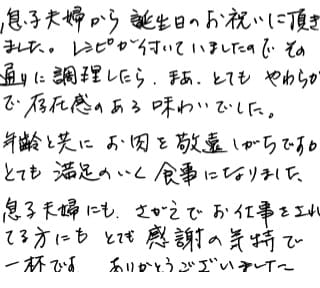 息子夫婦から誕生日のお祝いに頂き
ました。レシピが付いていましたので その
通りに調理したら、まあ、とても やわらか
で存在感のある味わいでした。
年齢と共に お肉を敬遠しがちですが
とても満足のいく食事になりました、
息子夫婦にも、さかえでお仕事をされ
てる方にも とても感謝の気持で
一杯です ありがとうございました